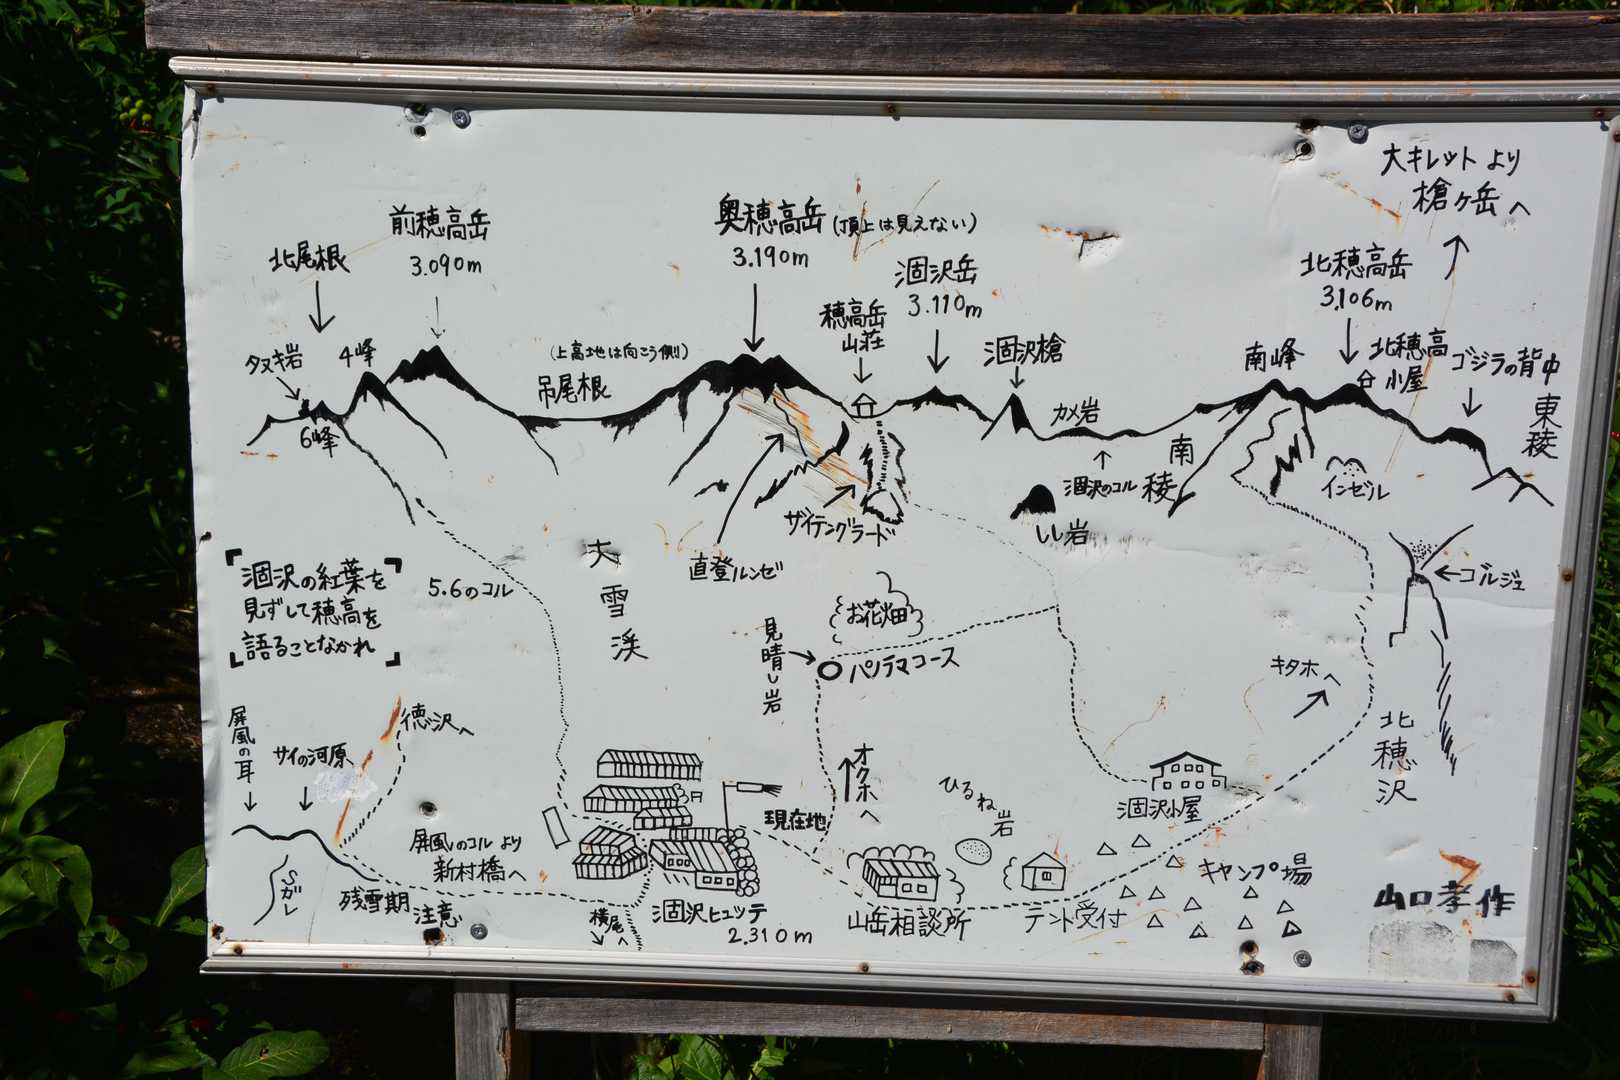 大キレットより
槍ヶ岳へ
前穂高岳
3.090m
奥穂高岳(頂上は見えない)
3.190m
北尾根
涸沢岳
3.110m
北穂高岳
3.106m
穂高岳
山荘
タヌキ岩
4峰
(上高地は向こう側)
吊尾根
涸沢槍
南峰
北穂高
小屋
ゴジラの背中
東稜
6峰
カメ岩
涸沢のコル
南稜
インゼル
ザイテングラード
しし岩
直登ルンゼ
大雪渓
ゴルジュ
「涸沢の紅葉を
見ずして穂高を
語ることなかれ」
5.6のコル
お花畑
見晴し岩
パノラマコース
キタホへ
北穂沢
屏風の耳
サイの河原
徳沢へ
オクホへ
現在地
ひるね岩
涸沢小屋
屏風のコルより
新村橋へ
キャンプ場
Sガレ
残雪期
注意
横尾へ
涸沢ヒュッテ
2.310m
山岳相談所
テント受付
山口孝作